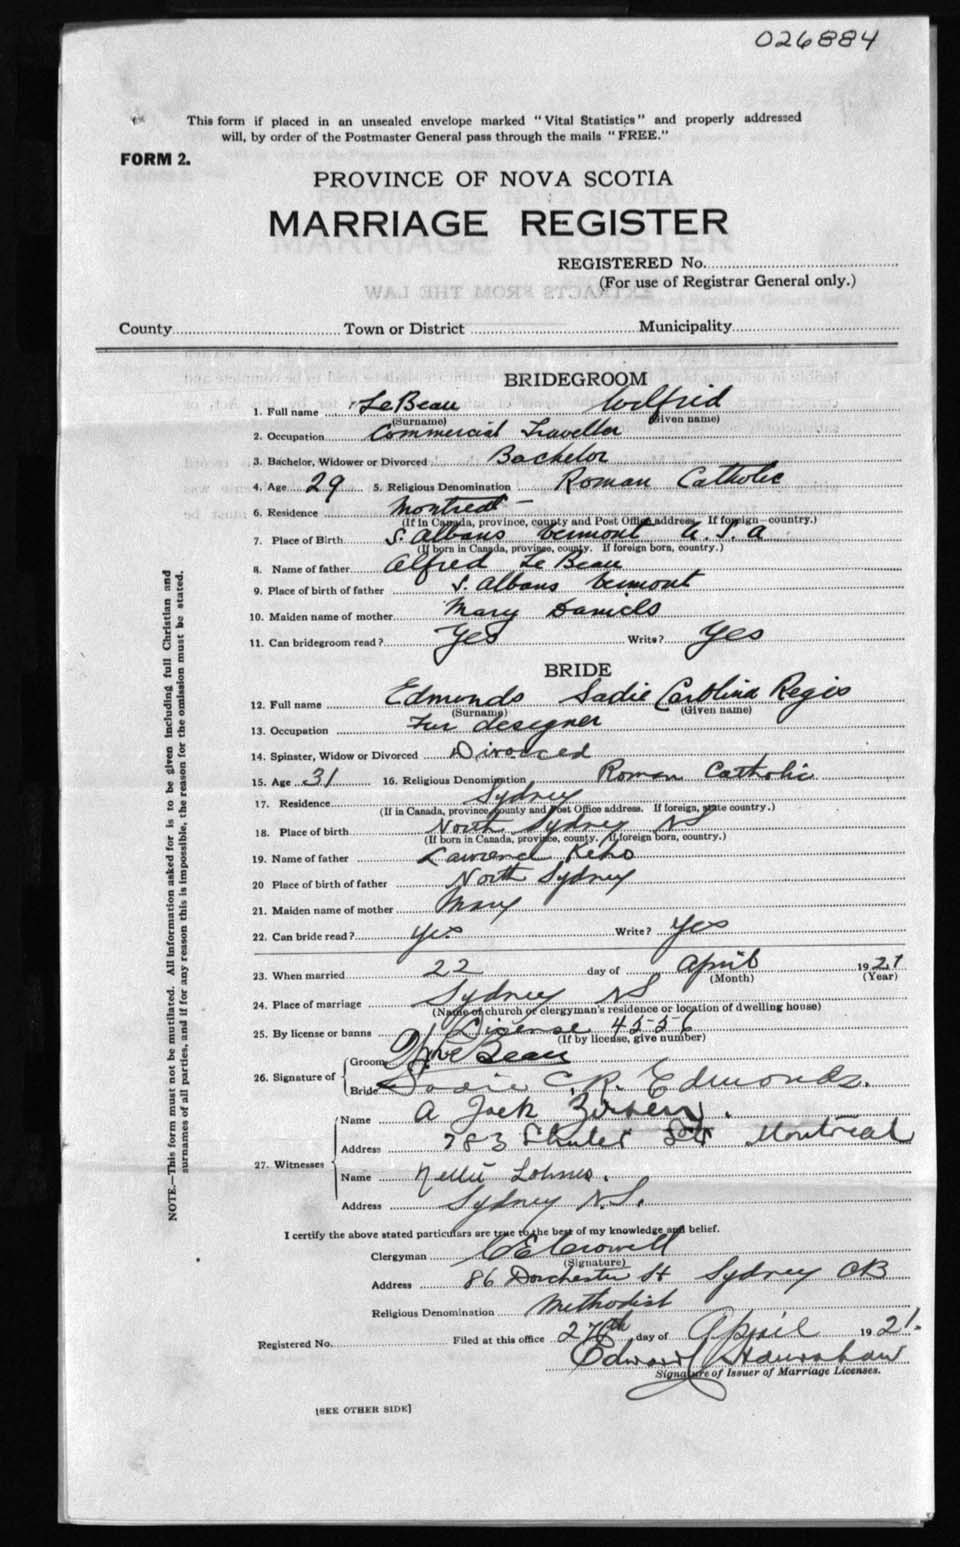 026884
This form if placed in an unsealed envelope marked "Vital Statistics" and properly addressed
will, by order of the Postmaster General pass through the mails "FREE."
FORM 2.
PROVINCE OF NOVA SCOTIA
MARRIAGE REGISTER
REGISTERED No.
(For use of Registrar General only.)
County Town or District Municipality
BRIDEGROOM
1. Full name LeBeau Wilfred
(Surname) (Given name)
2. Occupation Commercial Traveller
3. Bachelor, Widower or Divorced Bachelor
4. Age 29 5. Religious Denomination Roman Catholic
6. Residence Montreal -
(If in Canada, province, county and Post Office address. If foreign—country.)
7. Place of Birth S. Albans Vermont U.S.A
(If born in Canada, province, county. If foreign born, country.)
8. Name of father Alfred Le Beau
9. Place of birth of father S. Albans Vermont
10. Maiden name of mother Mary Daniels
11. Can bridegroom read? Yes Write? Yes
BRIDE
12. Full name Edmonds Sadie Carolina Regis
(Surname) (Given name)
13. Occupation Fur designer
14. Spinster, Widow or Divorced Divorced
15. Age 31 16. Religious Denomination Roman Catholic
17. Residence Sydney
(If in Canada, province, county and Post Office address. If foreign, state country.)
18. Place of birth North Sydney NS
(If born in Canada, province, county. If foreign born, country.)
19. Name of father Lawrence Keho
20 Place of birth of father North Sydney
21. Maiden name of mother Mary
22. Can bride read? Yes Write? Yes
23. When married 22 day of April 1921
(Month) (Year)
24. Place of marriage Sydney NS
(Name of church or clergyman's residence or location of dwelling house)
25. By license or banns License 4556
(If by license, give number)
26. Signature of Groom LeBeau
Bride Sadie C. R. Edmonds.
27. Witnesses Name A Jack
Address 783 Montreal
Name Nellie Lohnes.
Address Sydney N.S.
I certify the above stated particulars are true to the best of my knowledge and belief.
Clergyman C E Crowell
(Signature)
Address 86 Dorchester St Sydney CB
Religious Denomination Methodist
Registered No. Filed at this office 27th day of April 1921.
Edward
Signature of Issuer of Marriage Licenses.
[SEE OTHER SIDE]
NOTE.—This form must not be mutilated. All information asked for is to be given including full Christian and
surnames of all parties, and if for any reason this is impossible, the reason for the omission must be stated.